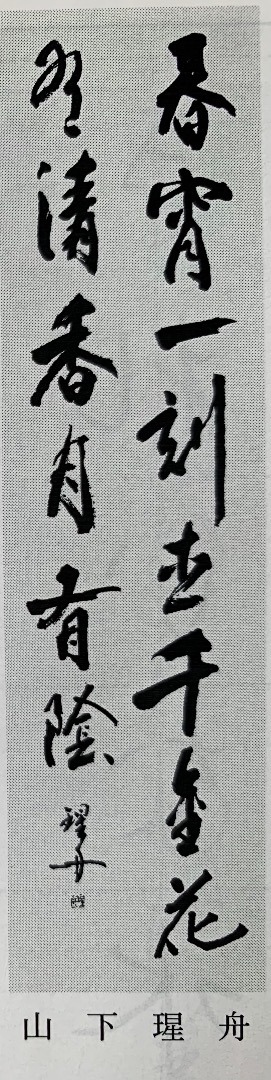 春宵一刻直千金花
有清香月有陰
瑆舟
山下瑆舟